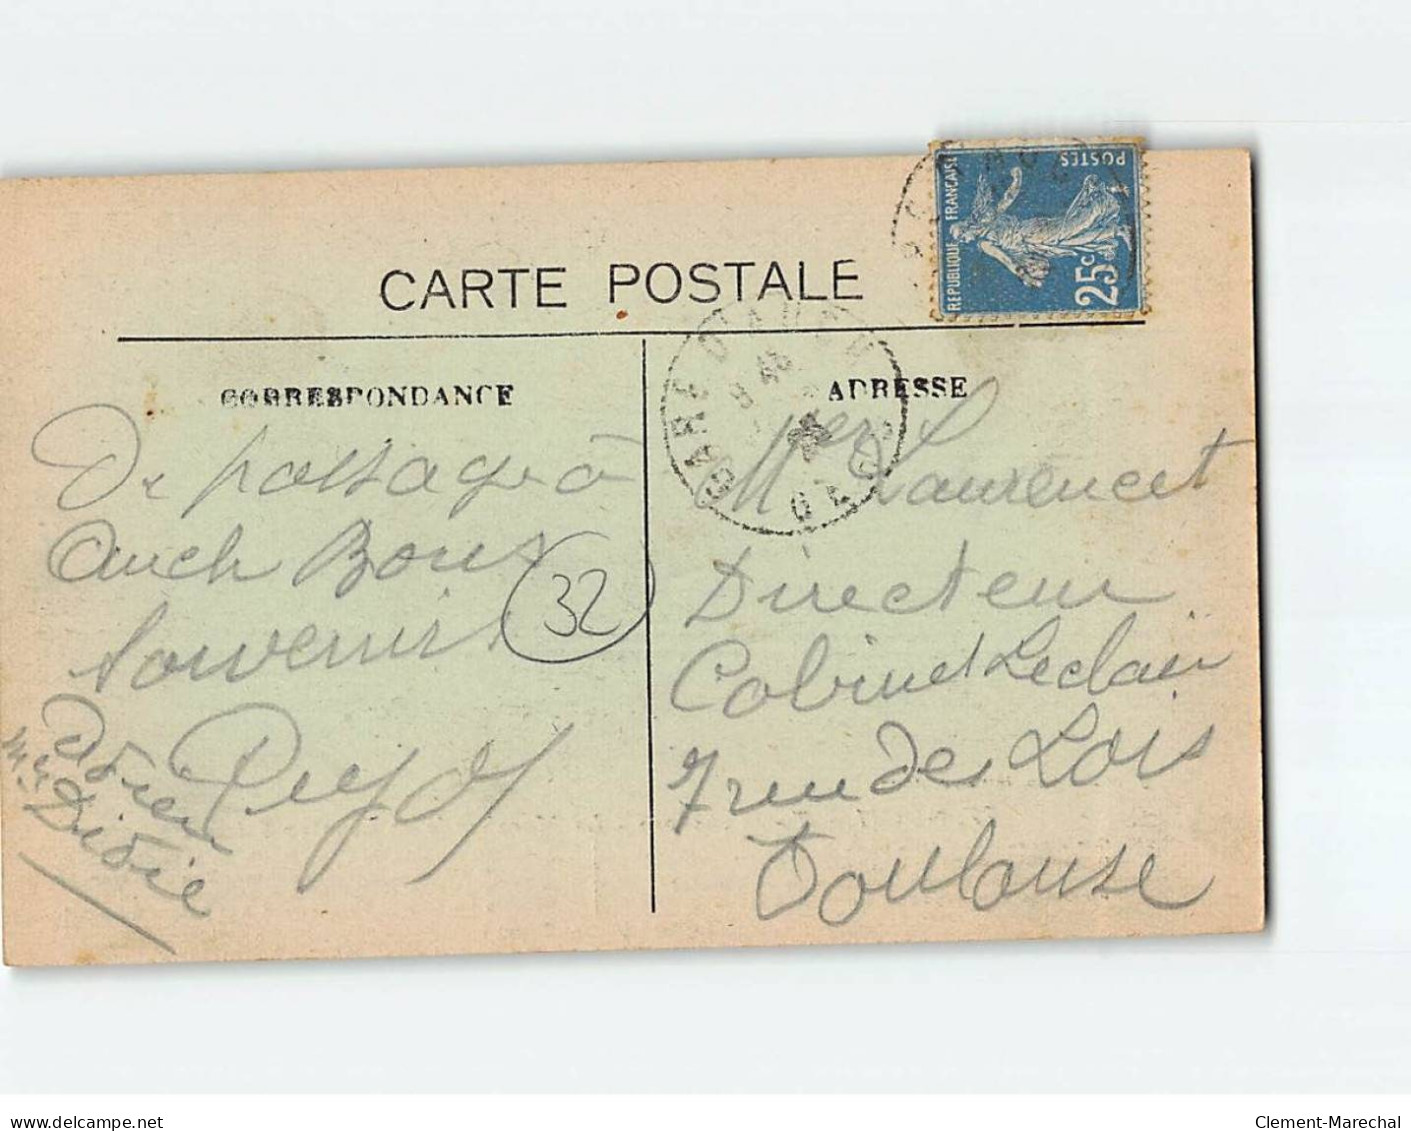 CARTE POSTALE
REPUBLIQUE FRANÇAISE
POSTES
25c
CORRESPONDANCE
De passage à
Auch Bons
Souvenirs
32
Adrien
Puyol
Mlle Didie
ADRESSE
GARE D'AUCH
Mr Laurencet
Directeur
Cabinet Leclair
7 rue des Lois
Toulouse
delcampe.net
Clement-Marechal